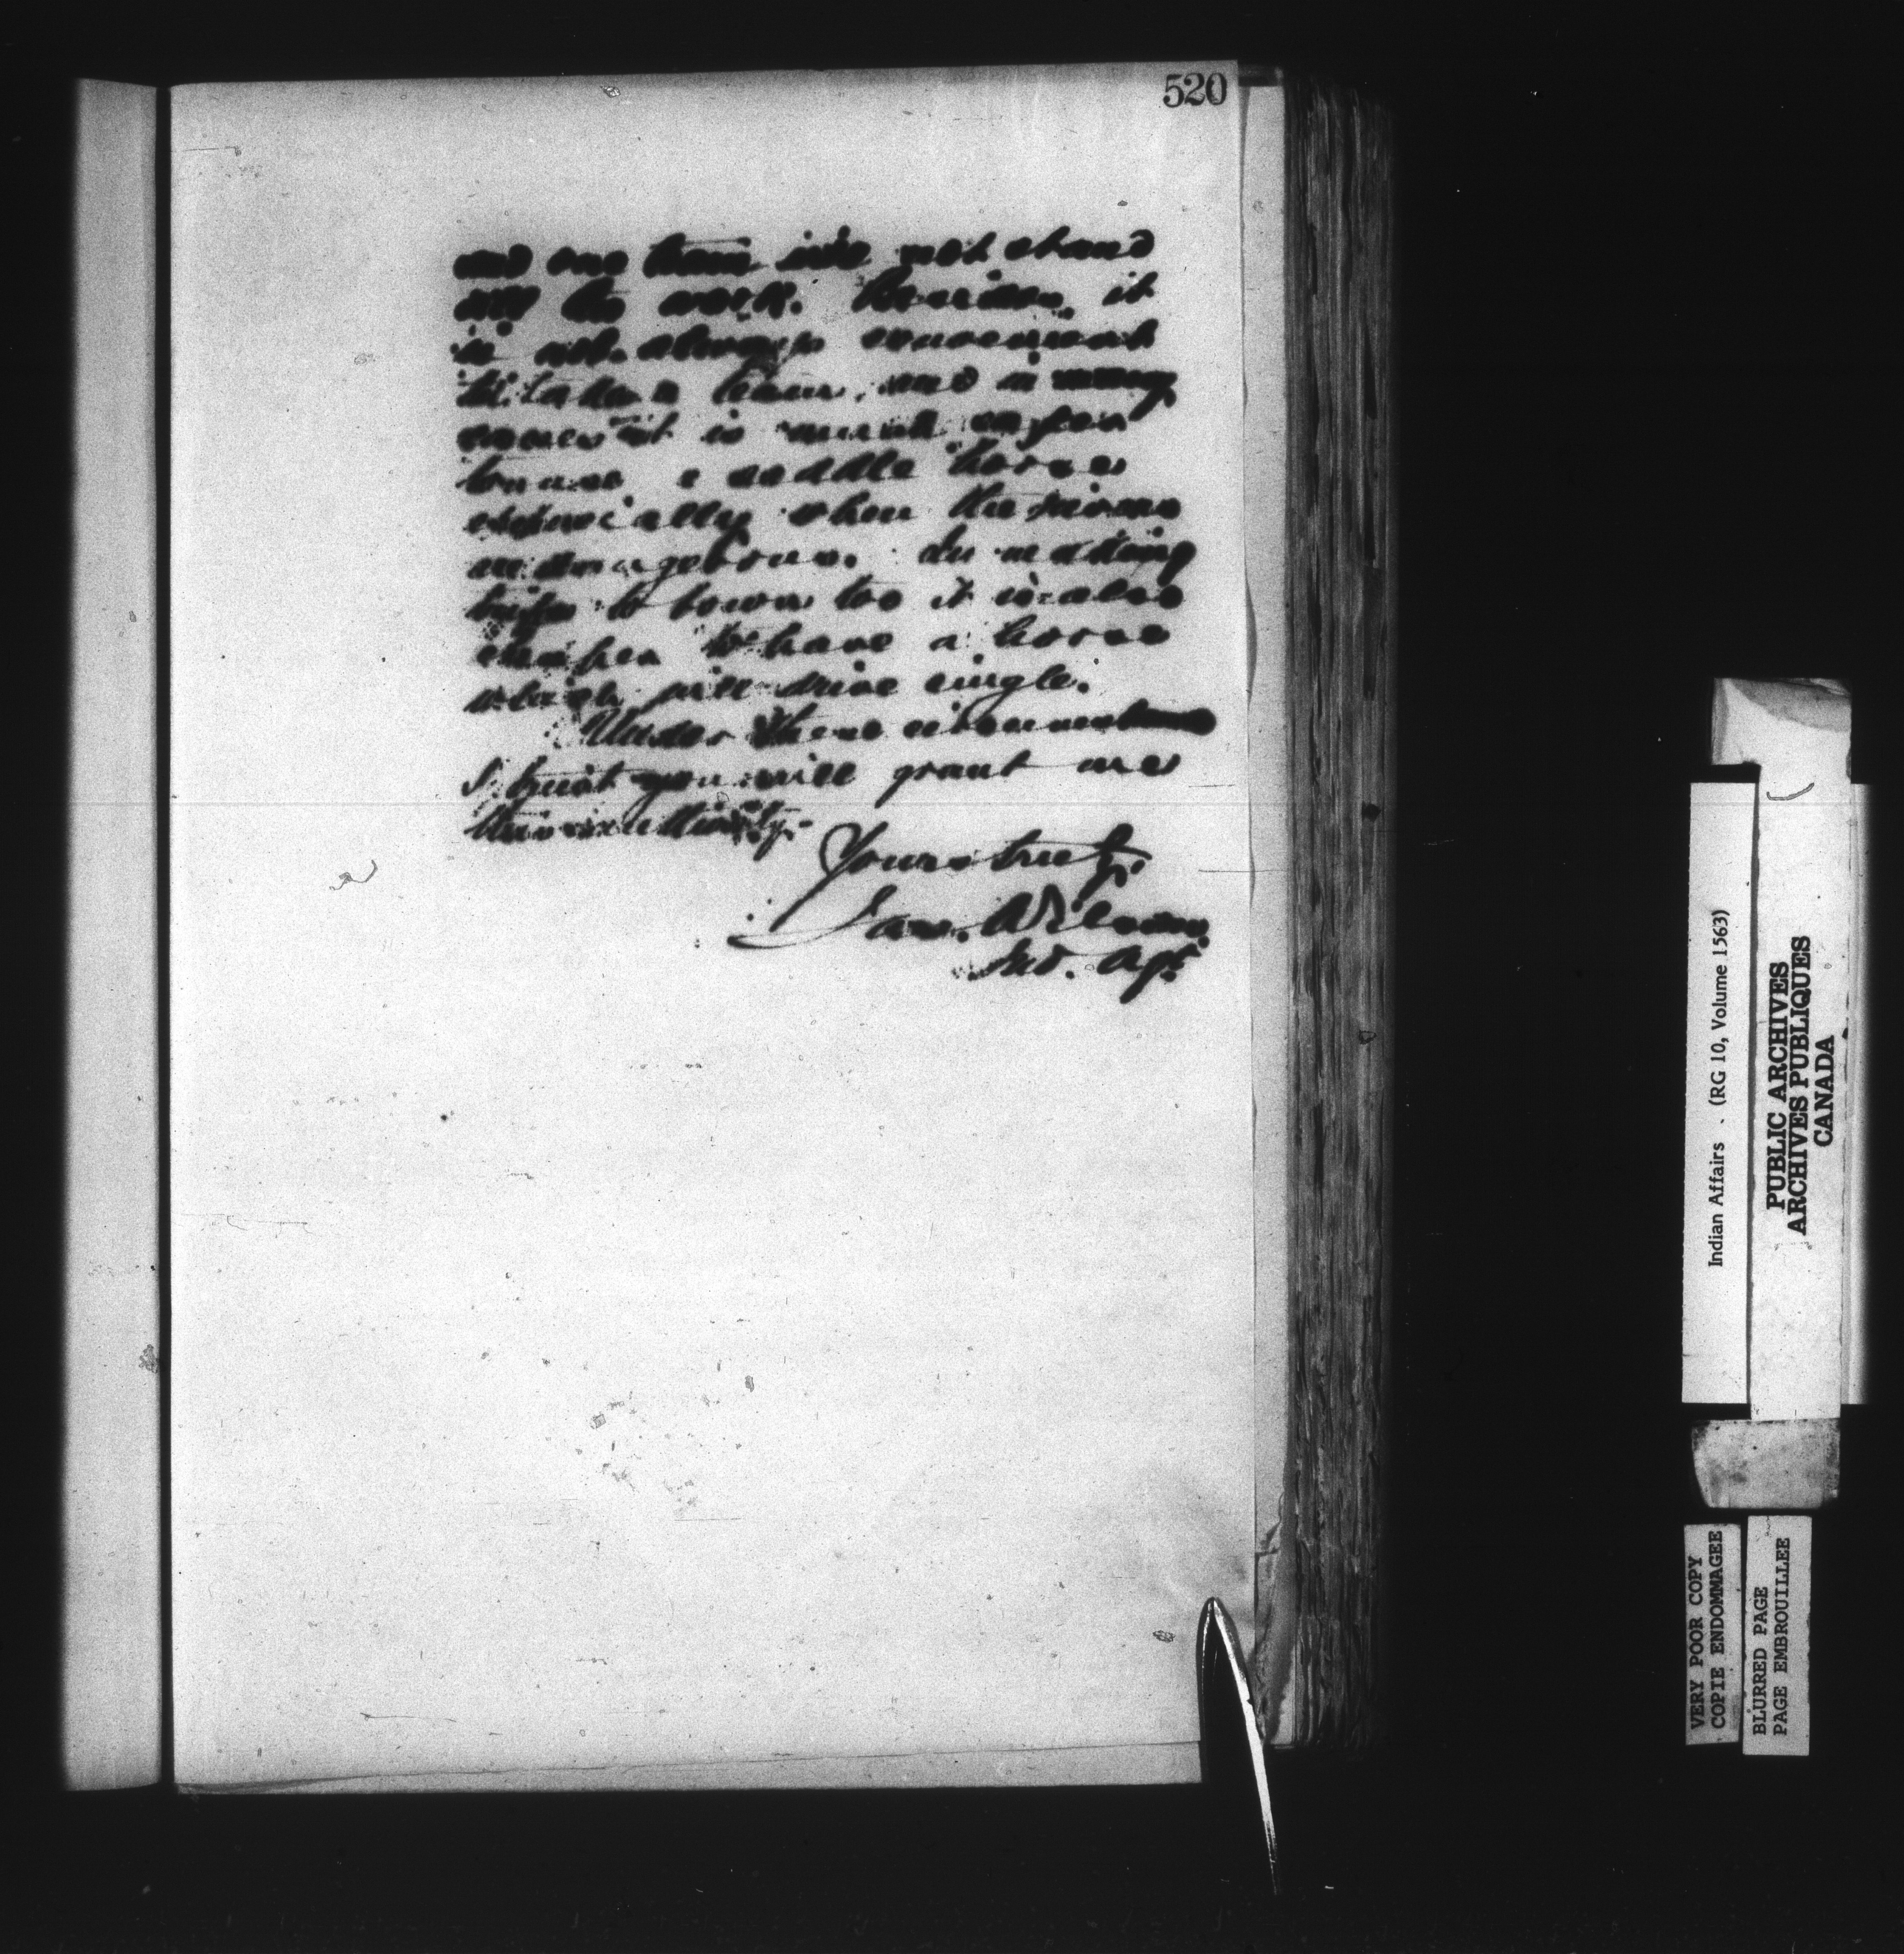 520
and one team will not stand
all the work. Besides, it
is not always convenient
to take a team, and in many
cases it is much easier
to use a saddle horse
especially when the rivers
are dangerous. In making
trips to town too it is also
cheaper to have a horse
which will drive single.
Under these circumstances
I trust you will grant me
this authority.
Yours truly,
Jas. Wilson
Ind. Agt
Indian Affairs . (RG 10, Volume 1563)
PUBLIC ARCHIVES
ARCHIVES PUBLIQUES
CANADA
VERY POOR COPY
COPIE ENDOMMAGEE
BLURRED PAGE
PAGE EMBROUILLEE